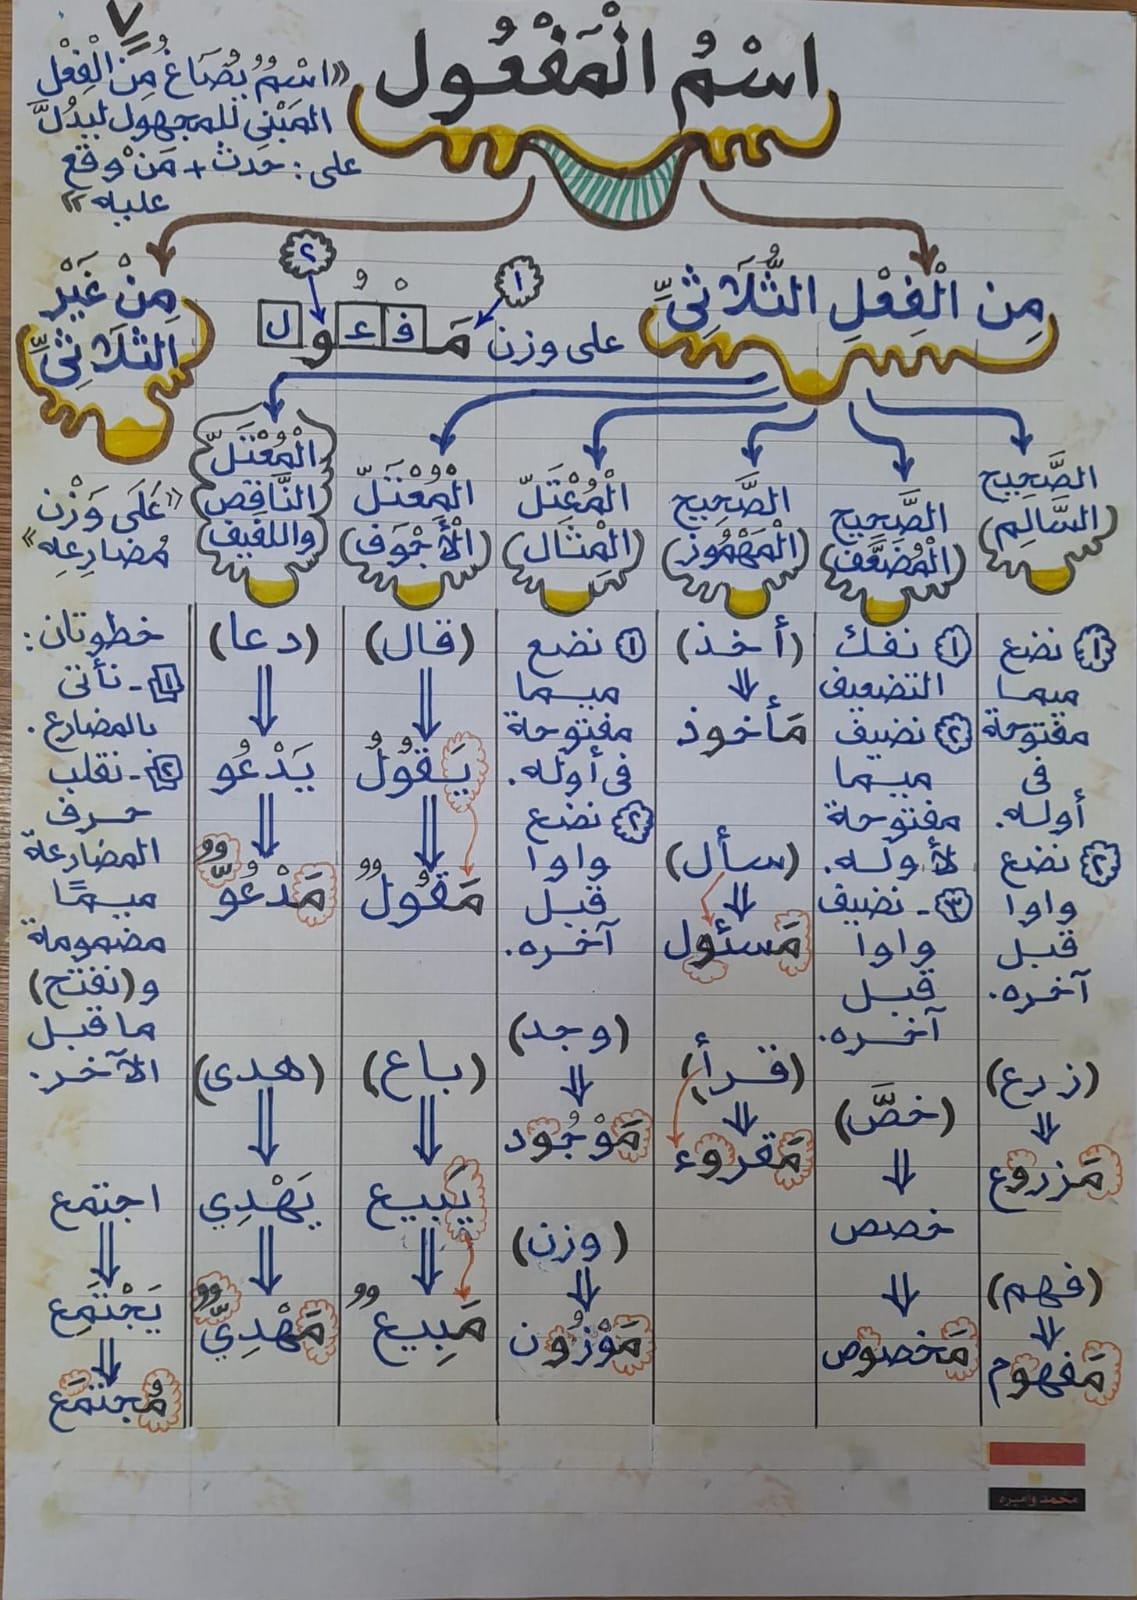 اسْمُ الْمَفْعُول
٧
«اسْمٌ يُصَاغُ مِنَ الْفِعْلِ
المَبْني للمجهول لِيَدُلَّ
على: حَدَث + مَنْ وقع
عليه»
مِن الْفِعْلِ الثُّلَاثِيِّ
على وزن مَفْعُول
١
٢
مِنْ غَيْرِ
الثلَاثِيِّ
الصَّحِيح
(السَّالِم)
١ نضع
ميما
مفتوحة
فى
أوله.
٢ نضع
واوا
قبل
آخره.
(زرع)
مَزروع
(فهم)
مَفهوم
الصَّحِيح
(الْمُضَعَّف)
١ نفك
التضعيف
٢ نضيف
ميما
مفتوحة
لأوله.
٣- نضيف
واوا
قبل
آخره.
(خصَّ)
خصص
مَخصوص
الصَّحِيح
(المَهْمُوز)
(أخذ)
مَأخوذ
(سأل)
مَسئول
(قرأ)
مَقروء
الْمُعْتَلّ
(المِثَال)
١ نضع
ميما
مفتوحة
فى أوله.
٢ نضع
واوا
قبل
آخره.
(وجد)
مَوْجُود
(وزن)
مَوْزُون
المُعْتَلّ
(الْأَجْوَف)
(قال)
يَقُولُ
مَقُولٌ
(باع)
يَبيع
مَبِيعٌ
الْمُعْتَلّ
النَّاقِص
واللفِيف
(دعا)
يَدْعُو
مَدْعُوٌّ
(هدى)
يَهْدِي
مَهْدِيٌّ
«عَلَى وَزْن
مُضَارِعِهِ»
خطوتان:
١- نأتى
بالمضارع.
٢- نقلب
حرف
المضارعة
ميمًا
مضمومة
و(نفتح)
ما قبل
الآخر.
اجتمع
يَجْتَمِع
مُجتَمَع
محمد وأميره